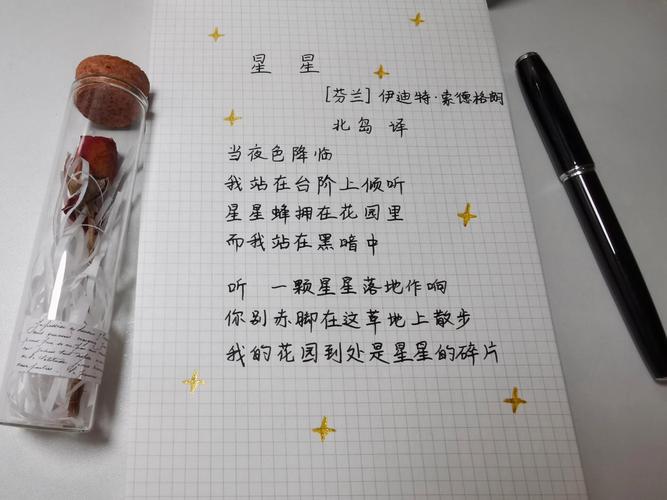 星 星
[芬兰] 伊迪特·索德格朗
北岛 译
当夜色降临
我站在台阶上倾听
星星蜂拥在花园里
而我站在黑暗中
听 一颗星星落地作响
你别赤脚在这草地上散步
我的花园到处是星星的碎片